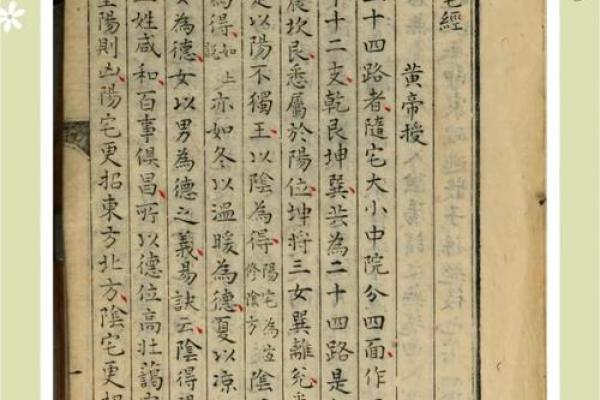 宅經
黄帝授
二十四路者隨宅大小中院分四面作
十二支乾艮坤巽共為二十四路是
震坎艮悉屬於陽位坤將三女巽離兊
是以陽不獨王以陰為得陽宅為宜修陰方陰
為得如上亦如冬以溫暖為德夏以凉
為德女以男為德之義易訣云陰得
姓咸和百事俱昌所以德位高壯藹
重陽則凶陽宅更招東方北方陰宅更招